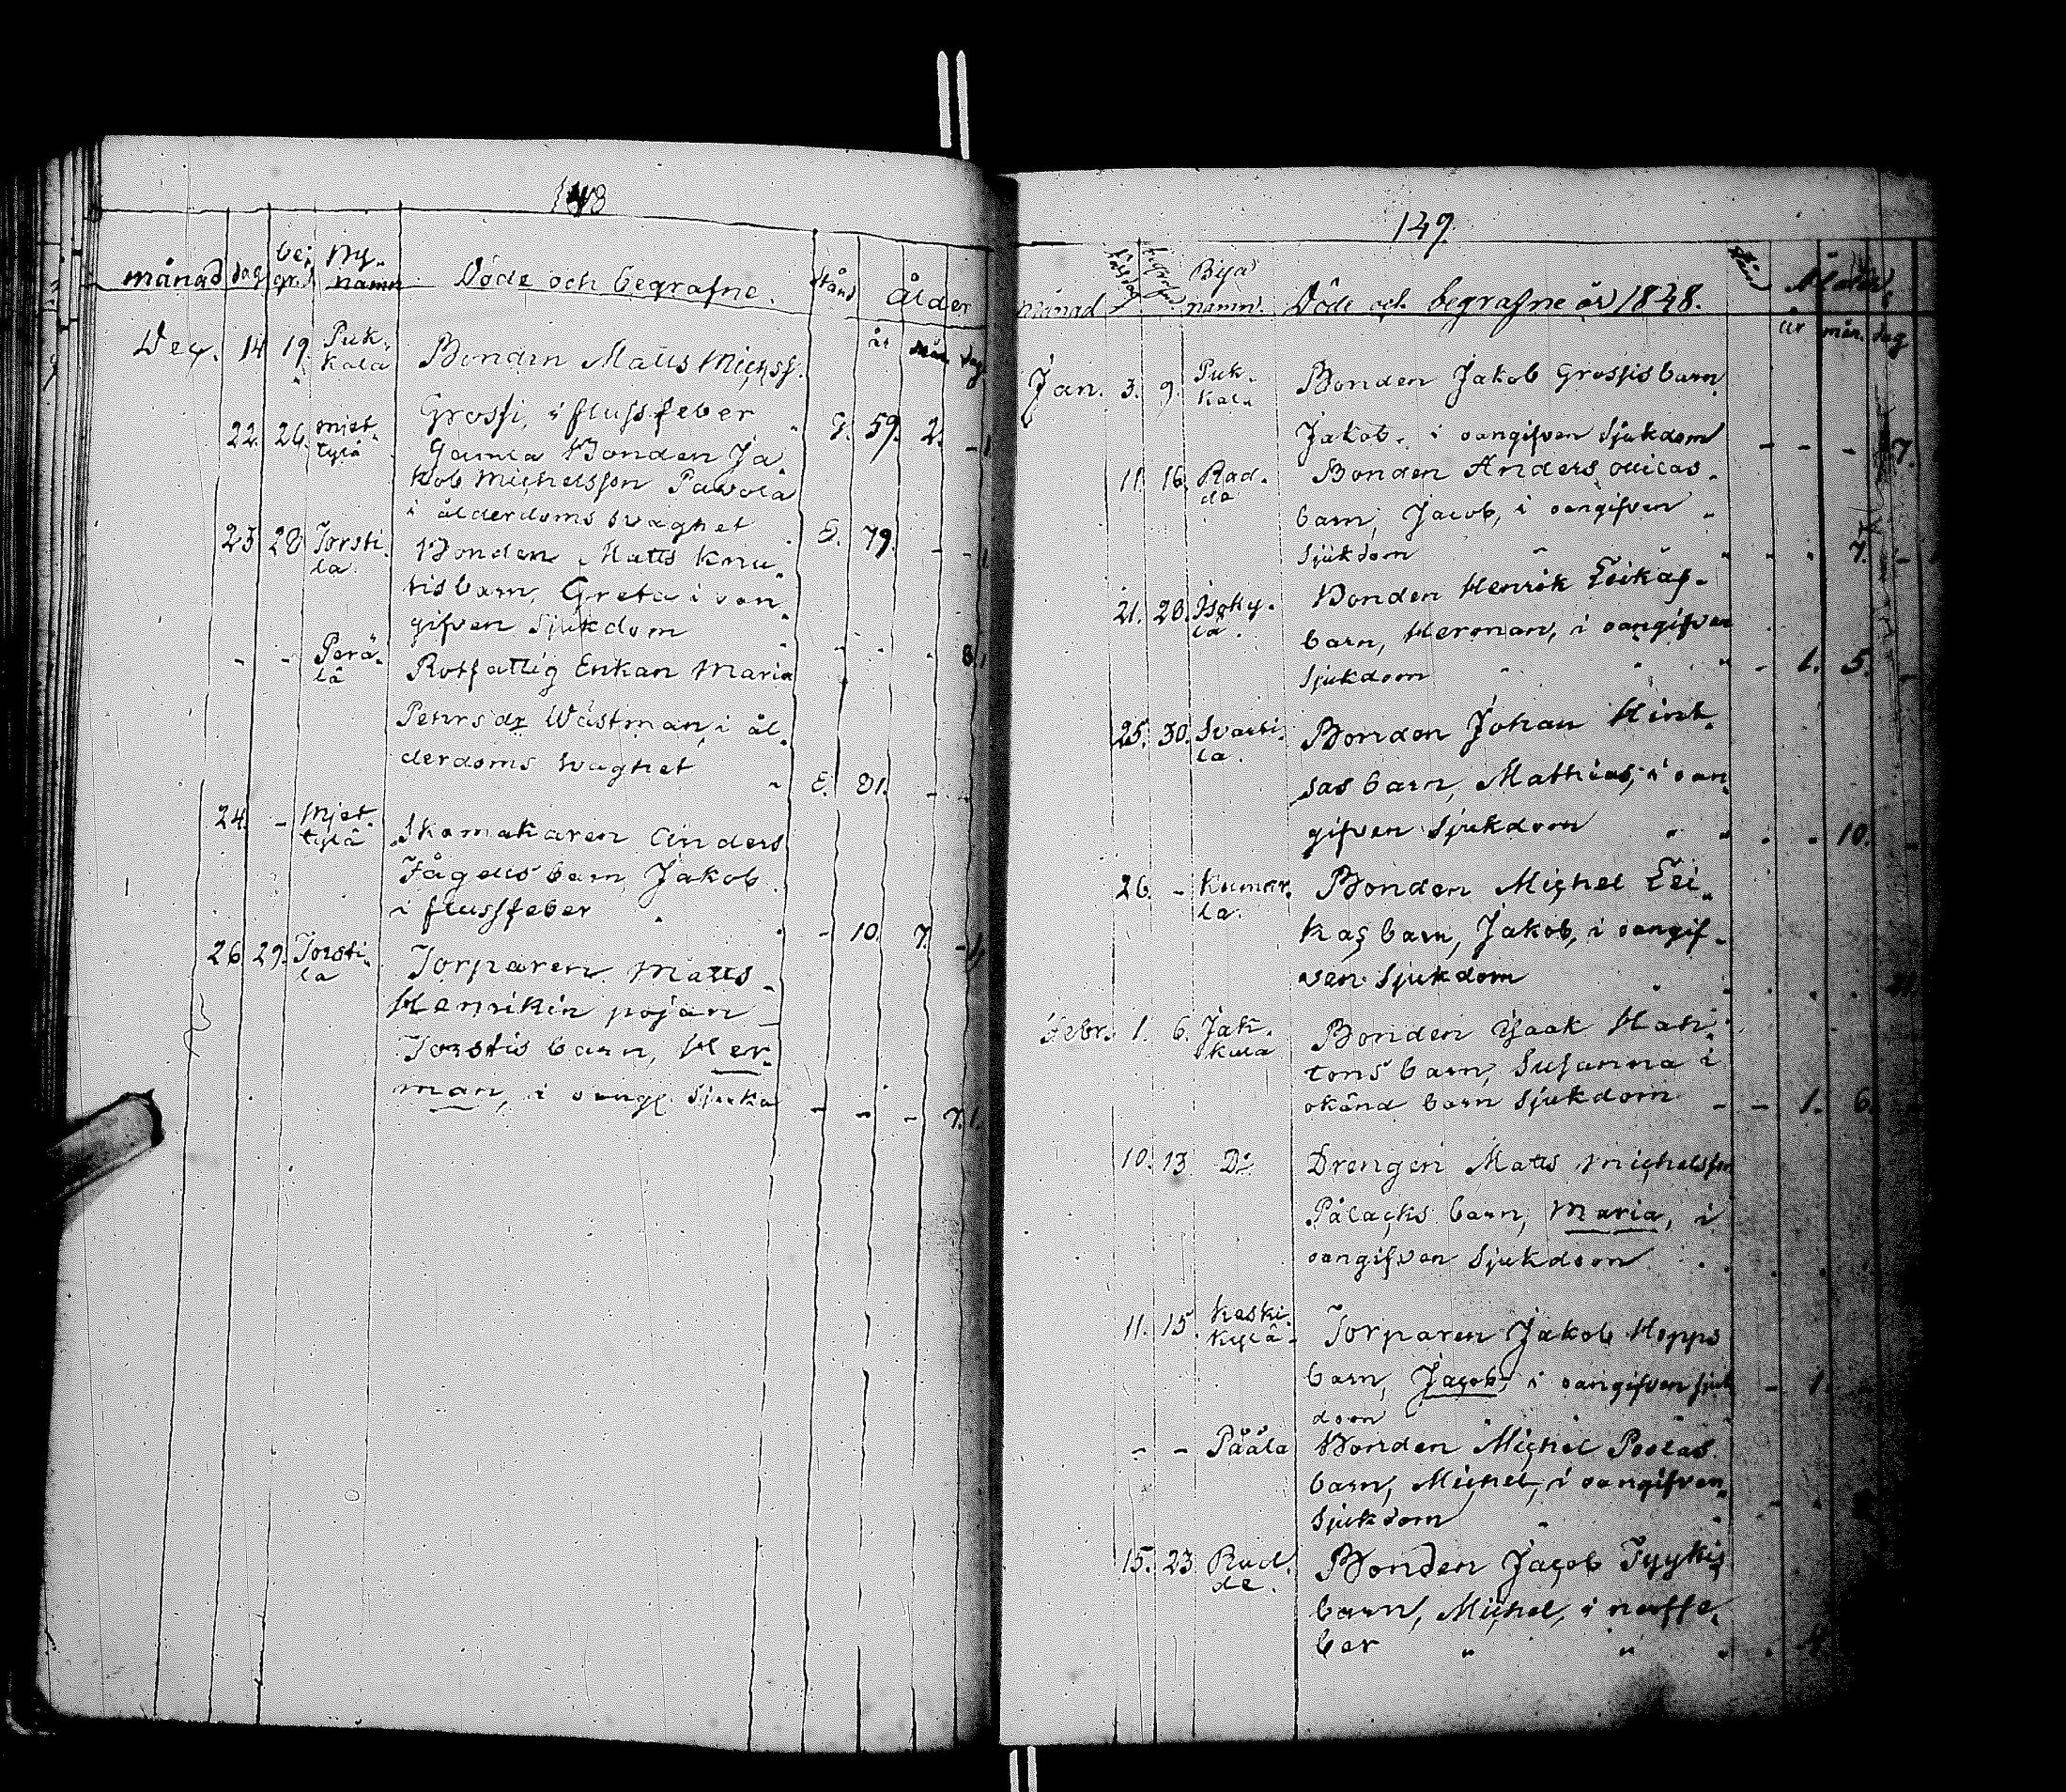 148
månad dag be: gr. By. namn Döde och begrafne. stånd ålder
år mån dag
Dec. 14 19. Puk- kala Bonden Matts Michss.
Grossi, i flussfeber G. 59. 2. -
22. 26. Mjet- tylä Gamla Bonden Ja-
kob Michelsson Pavola
i ålderdoms svaghet E. 79. - -
23 28 Torsti- la. Bonden Matts Knu-
tis barn, Greta i oan-
gifven sjukdom - - - 8.
- - Perä- lä Rotfattig Enkan Maria
Pehrs dr Wästman, i ål-
derdoms svaghet E. 81. - -
24. - Mjet- tylä Skomakaren Anders
Fågelis barn, Jakob
i flussfeber - 10. 7. -
26 29. Torsti- la Torparen Matts
Henrikin pojan
Torstis barn, Her-
man, i oangf. sjukd - - - 7.
149
månad Bya namn. Döde och begrafne år 1848. Ålder.
år mån. dag
Jan. 3. 9. Puk- kala Bonden Jakob Grossis barn
Jakob, i oangifven sjukdom - - - 7.
11. 16. Rad- de Bonden Anders
barn, Jacob, i oangifven
sjukdom 7. -
21. 28. Isoky- lä. Bonden Henrik Leikas-
barn, Herman, i oangifven
sjukdom - 1. 5. -
25. 30. Svarti- la. Bonden Johan Hint-
sas barn, Mathias, i oan-
gifven sjukdom 10. -
26. - Kumar- la. Bonden Michel Lei-
kas barn, Jakob, i oangif-
ven sjukdom
Febr. 1. 6. Jah- kula Bonden Isaak Hah-
tons barn, Susanna i
okänd barn sjukdom - - 1. 6.
10. 13 Do Drengen Matts Michelsson
Palacks barn, Maria, i
oangifven sjukdom
11. 15. Keski- kylä- Torparen Jakob Hopps
barn, Jacob, i oangifven sjuk - 1.
dom
- - Pääla Bonden Michel Poolas
barn, Michel, i oangifven
sjukdom
15. 23 Rad- de. Bonden Jacob Tyykis
barn, Michel, i
ber